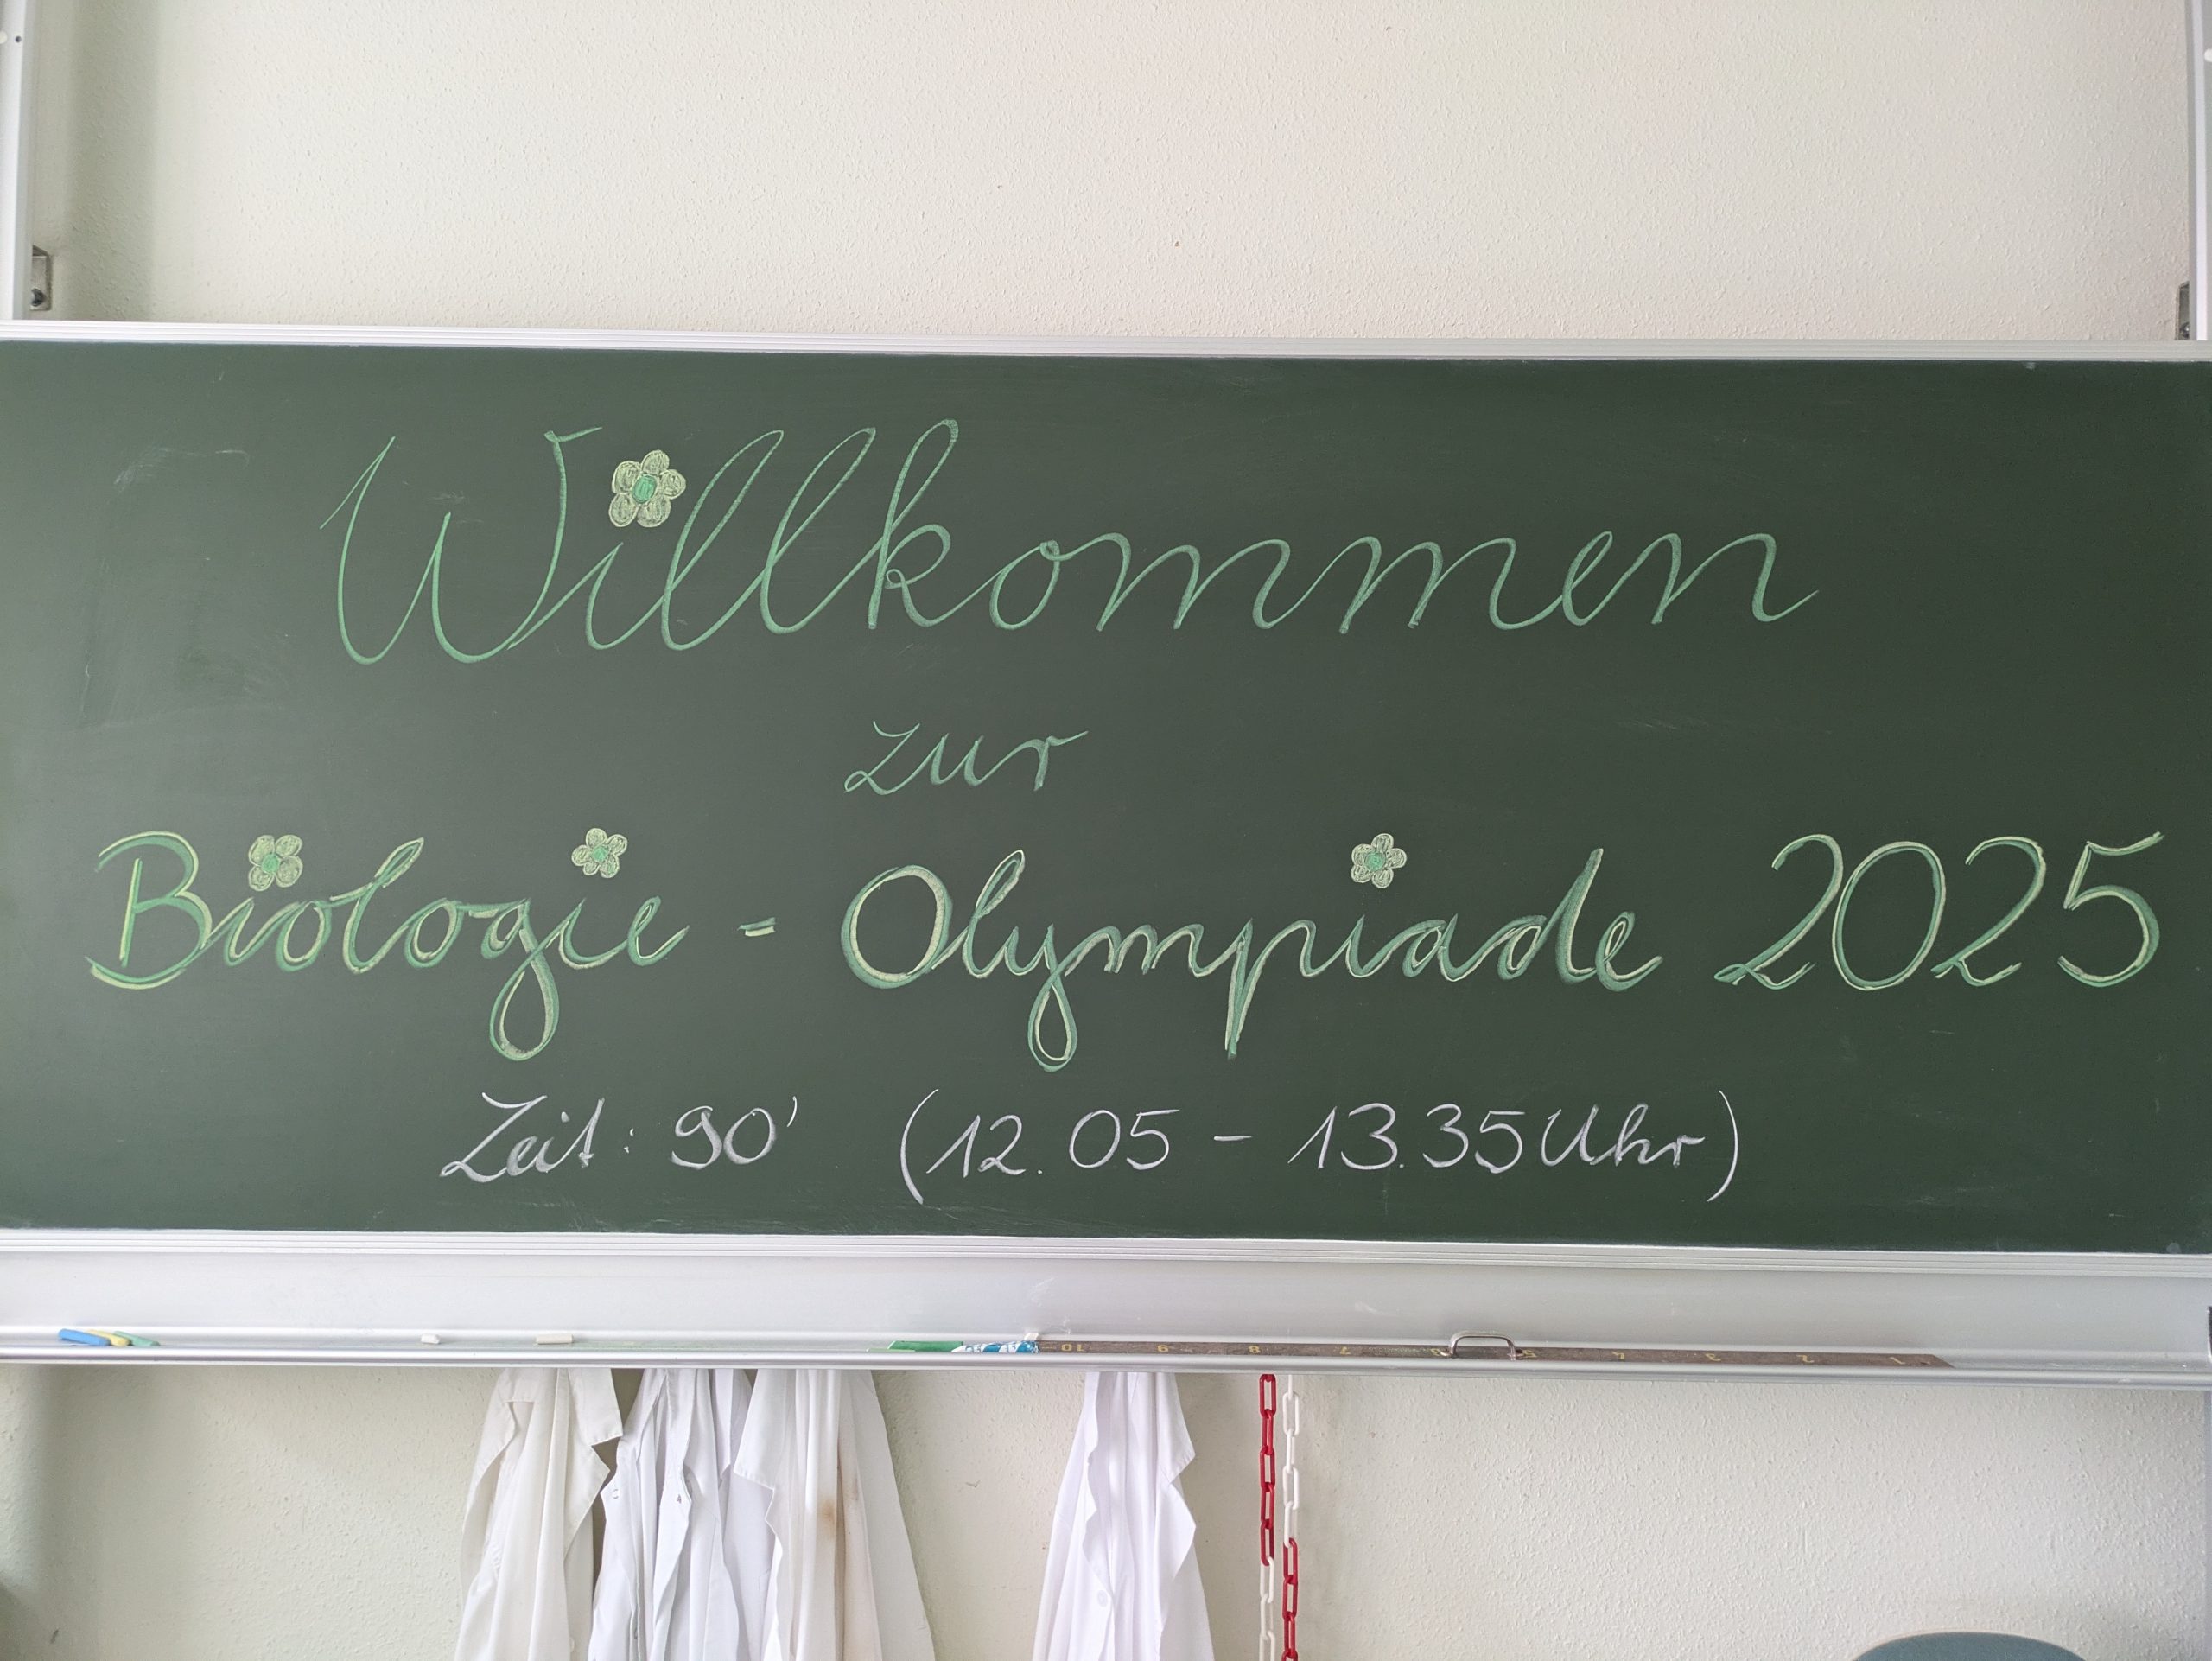 Willkommen
zur
Biologie - Olympiade 2025
Zeit: 90' (12.05 - 13.35 Uhr)
10 9 8 7 6 5 4 3 2 1